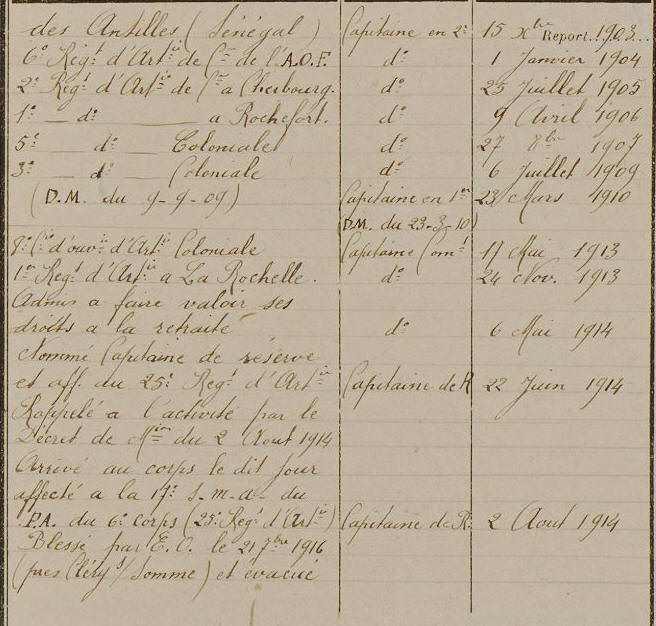 des Antilles (Sénégal) Capitaine en 2d 15 Xbre Report. 1903...
6e Régt d'Artie de Cne de l'A.O.F. do 1 Janvier 1904
2e Régt d'Artie de Cne a Cherbourg. do 25 Juillet 1905
1e — do — a Rochefort. do 9 Avril 1906
5e — do — Coloniale do 27 8bre 1907
3e — do — Coloniale do 6 Juillet 1909
(D.M. du 9-9-09) Capitaine en 1er 23 Mars 1910
(D.M. du 23-3-10)
8e Cie d'ouvrs d'Artie Coloniale Capitaine Comt 11 Mai 1913
1er Régt d'Artie a La Rochelle. do 24 Nov. 1913
Admis a faire valoir ses
droits a la retraite do 6 Mai 1914
Nommé Capitaine de réserve
et aff. au 25e Régt d'Artie Capitaine de R 22 Juin 1914
Rappelé a l'activité par le
Décret de Mion du 2 Aout 1914
Arrivé au corps le dit jour
affecté a la 17e S.M.A. du
P.A. du 6e Corps (25e Régt d'Artie) Capitaine de R. 2 Aout 1914
Blessé par E.O. le 21 7bre 1916
(pres Cléry s/ Somme) et évacué